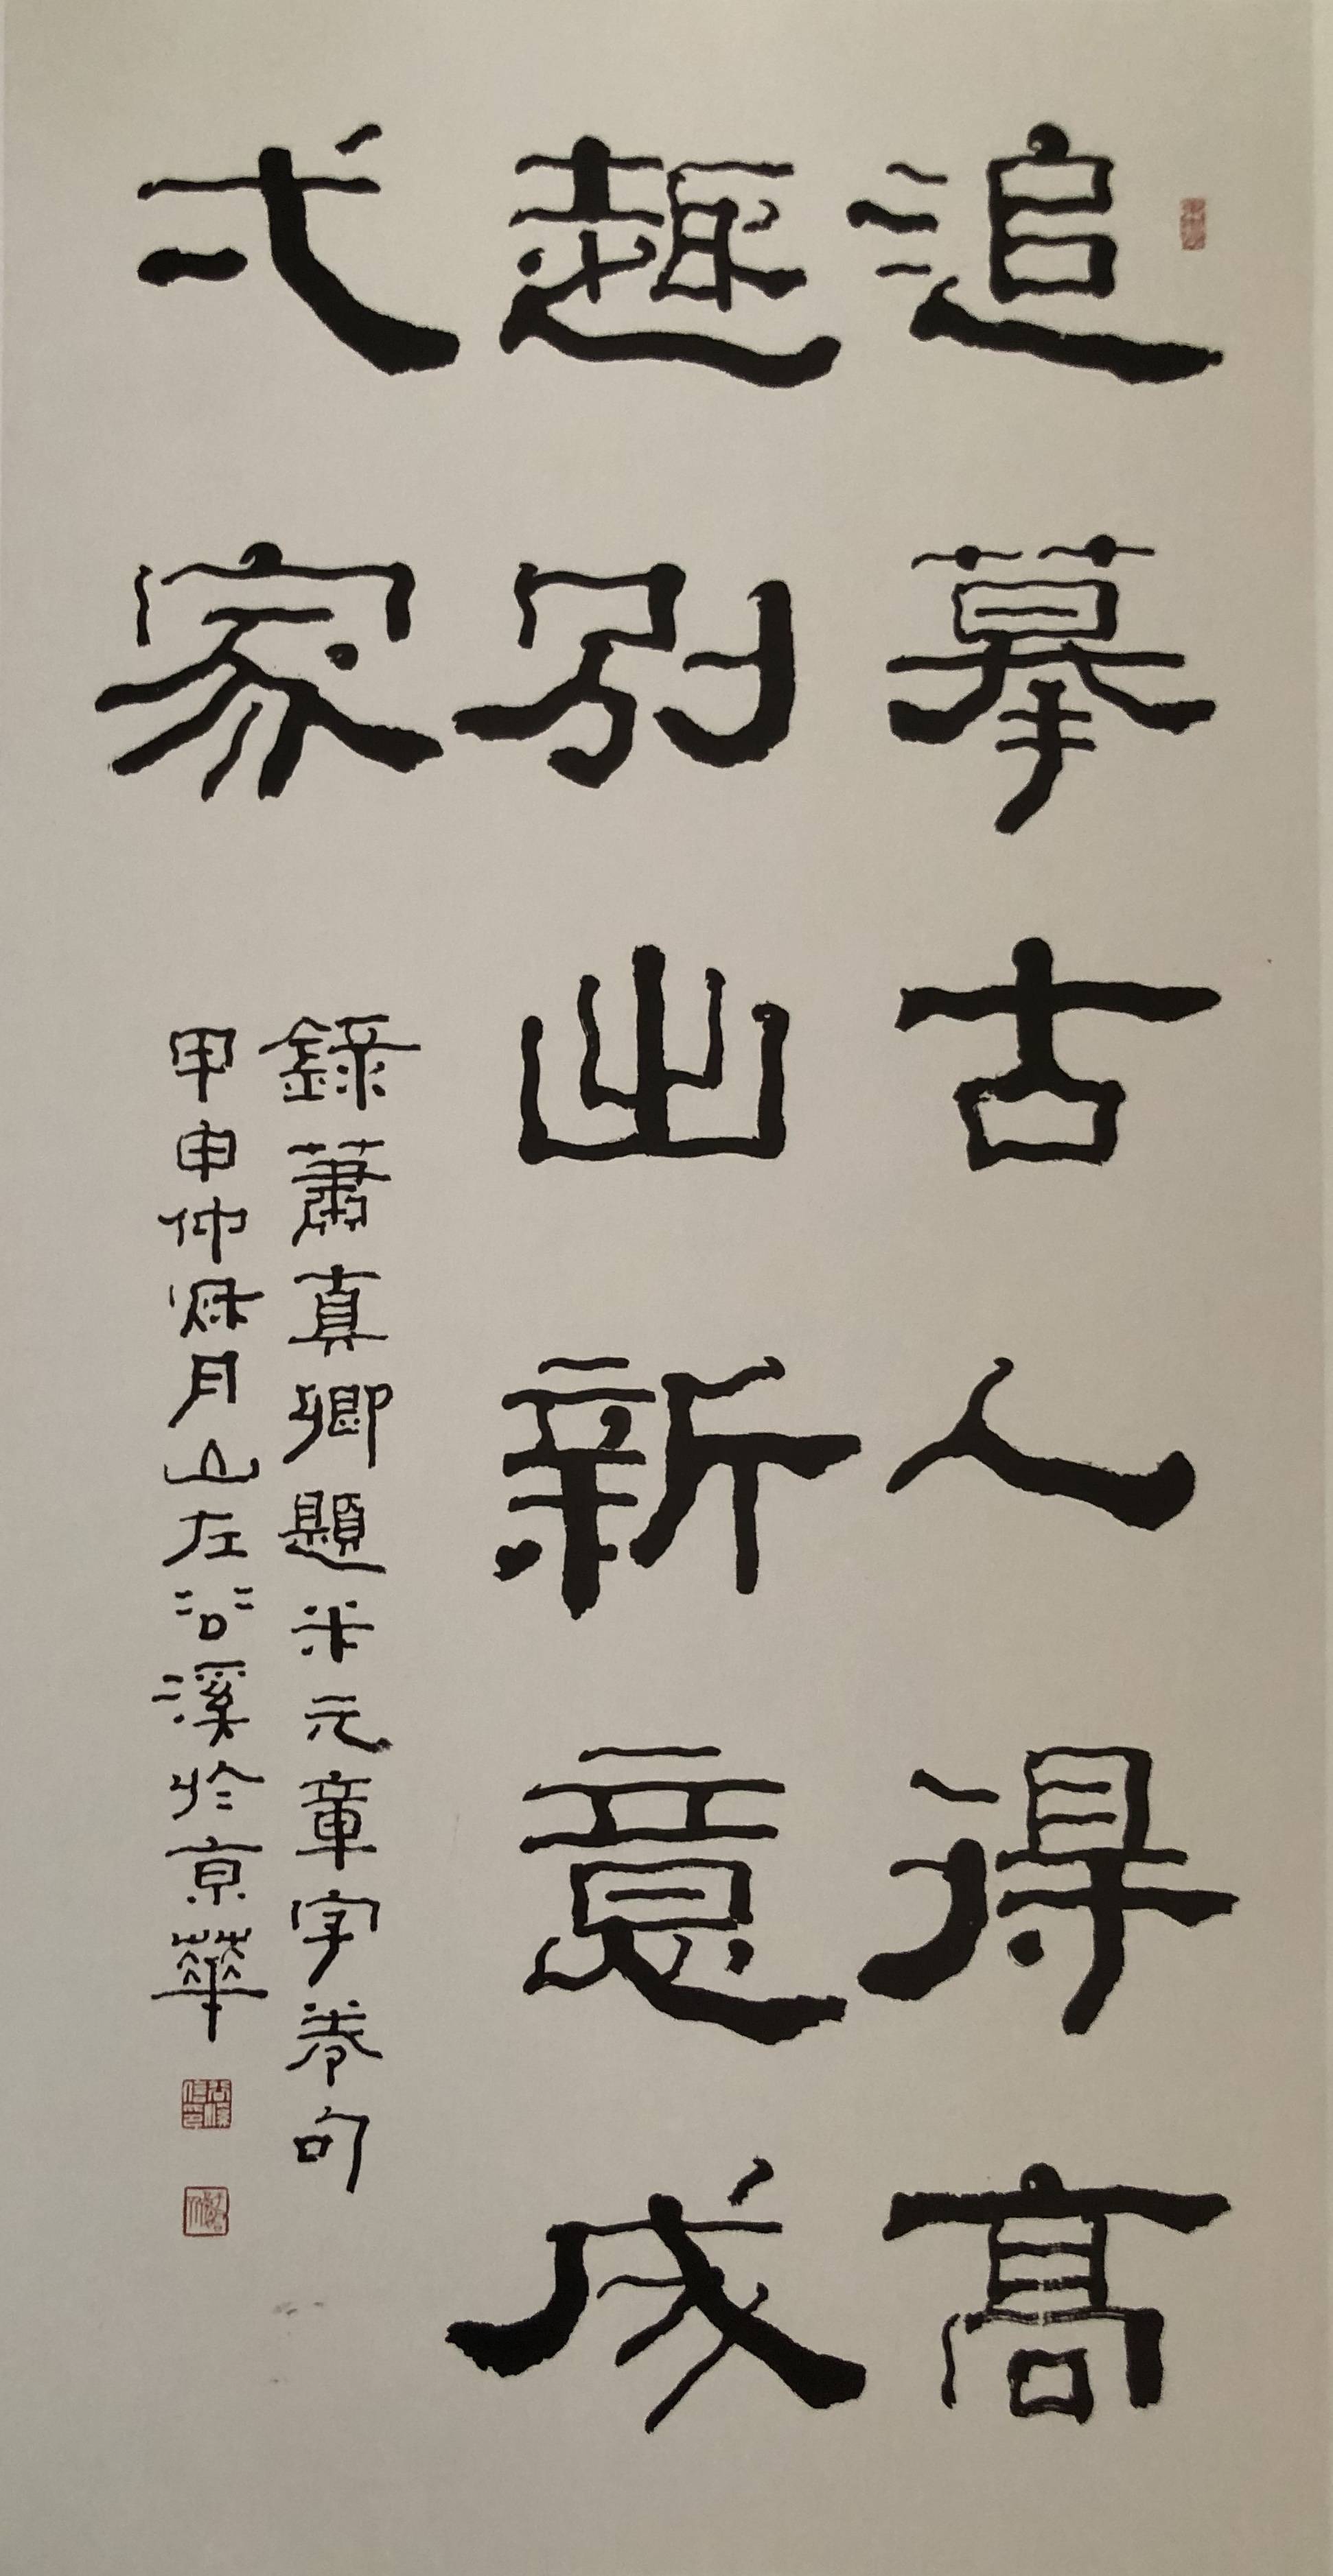 追摹古人得高
趣別出新意成
弌家
錄蕭真卿題米元章字卷句
甲申仲秋月山左谷溪於京華